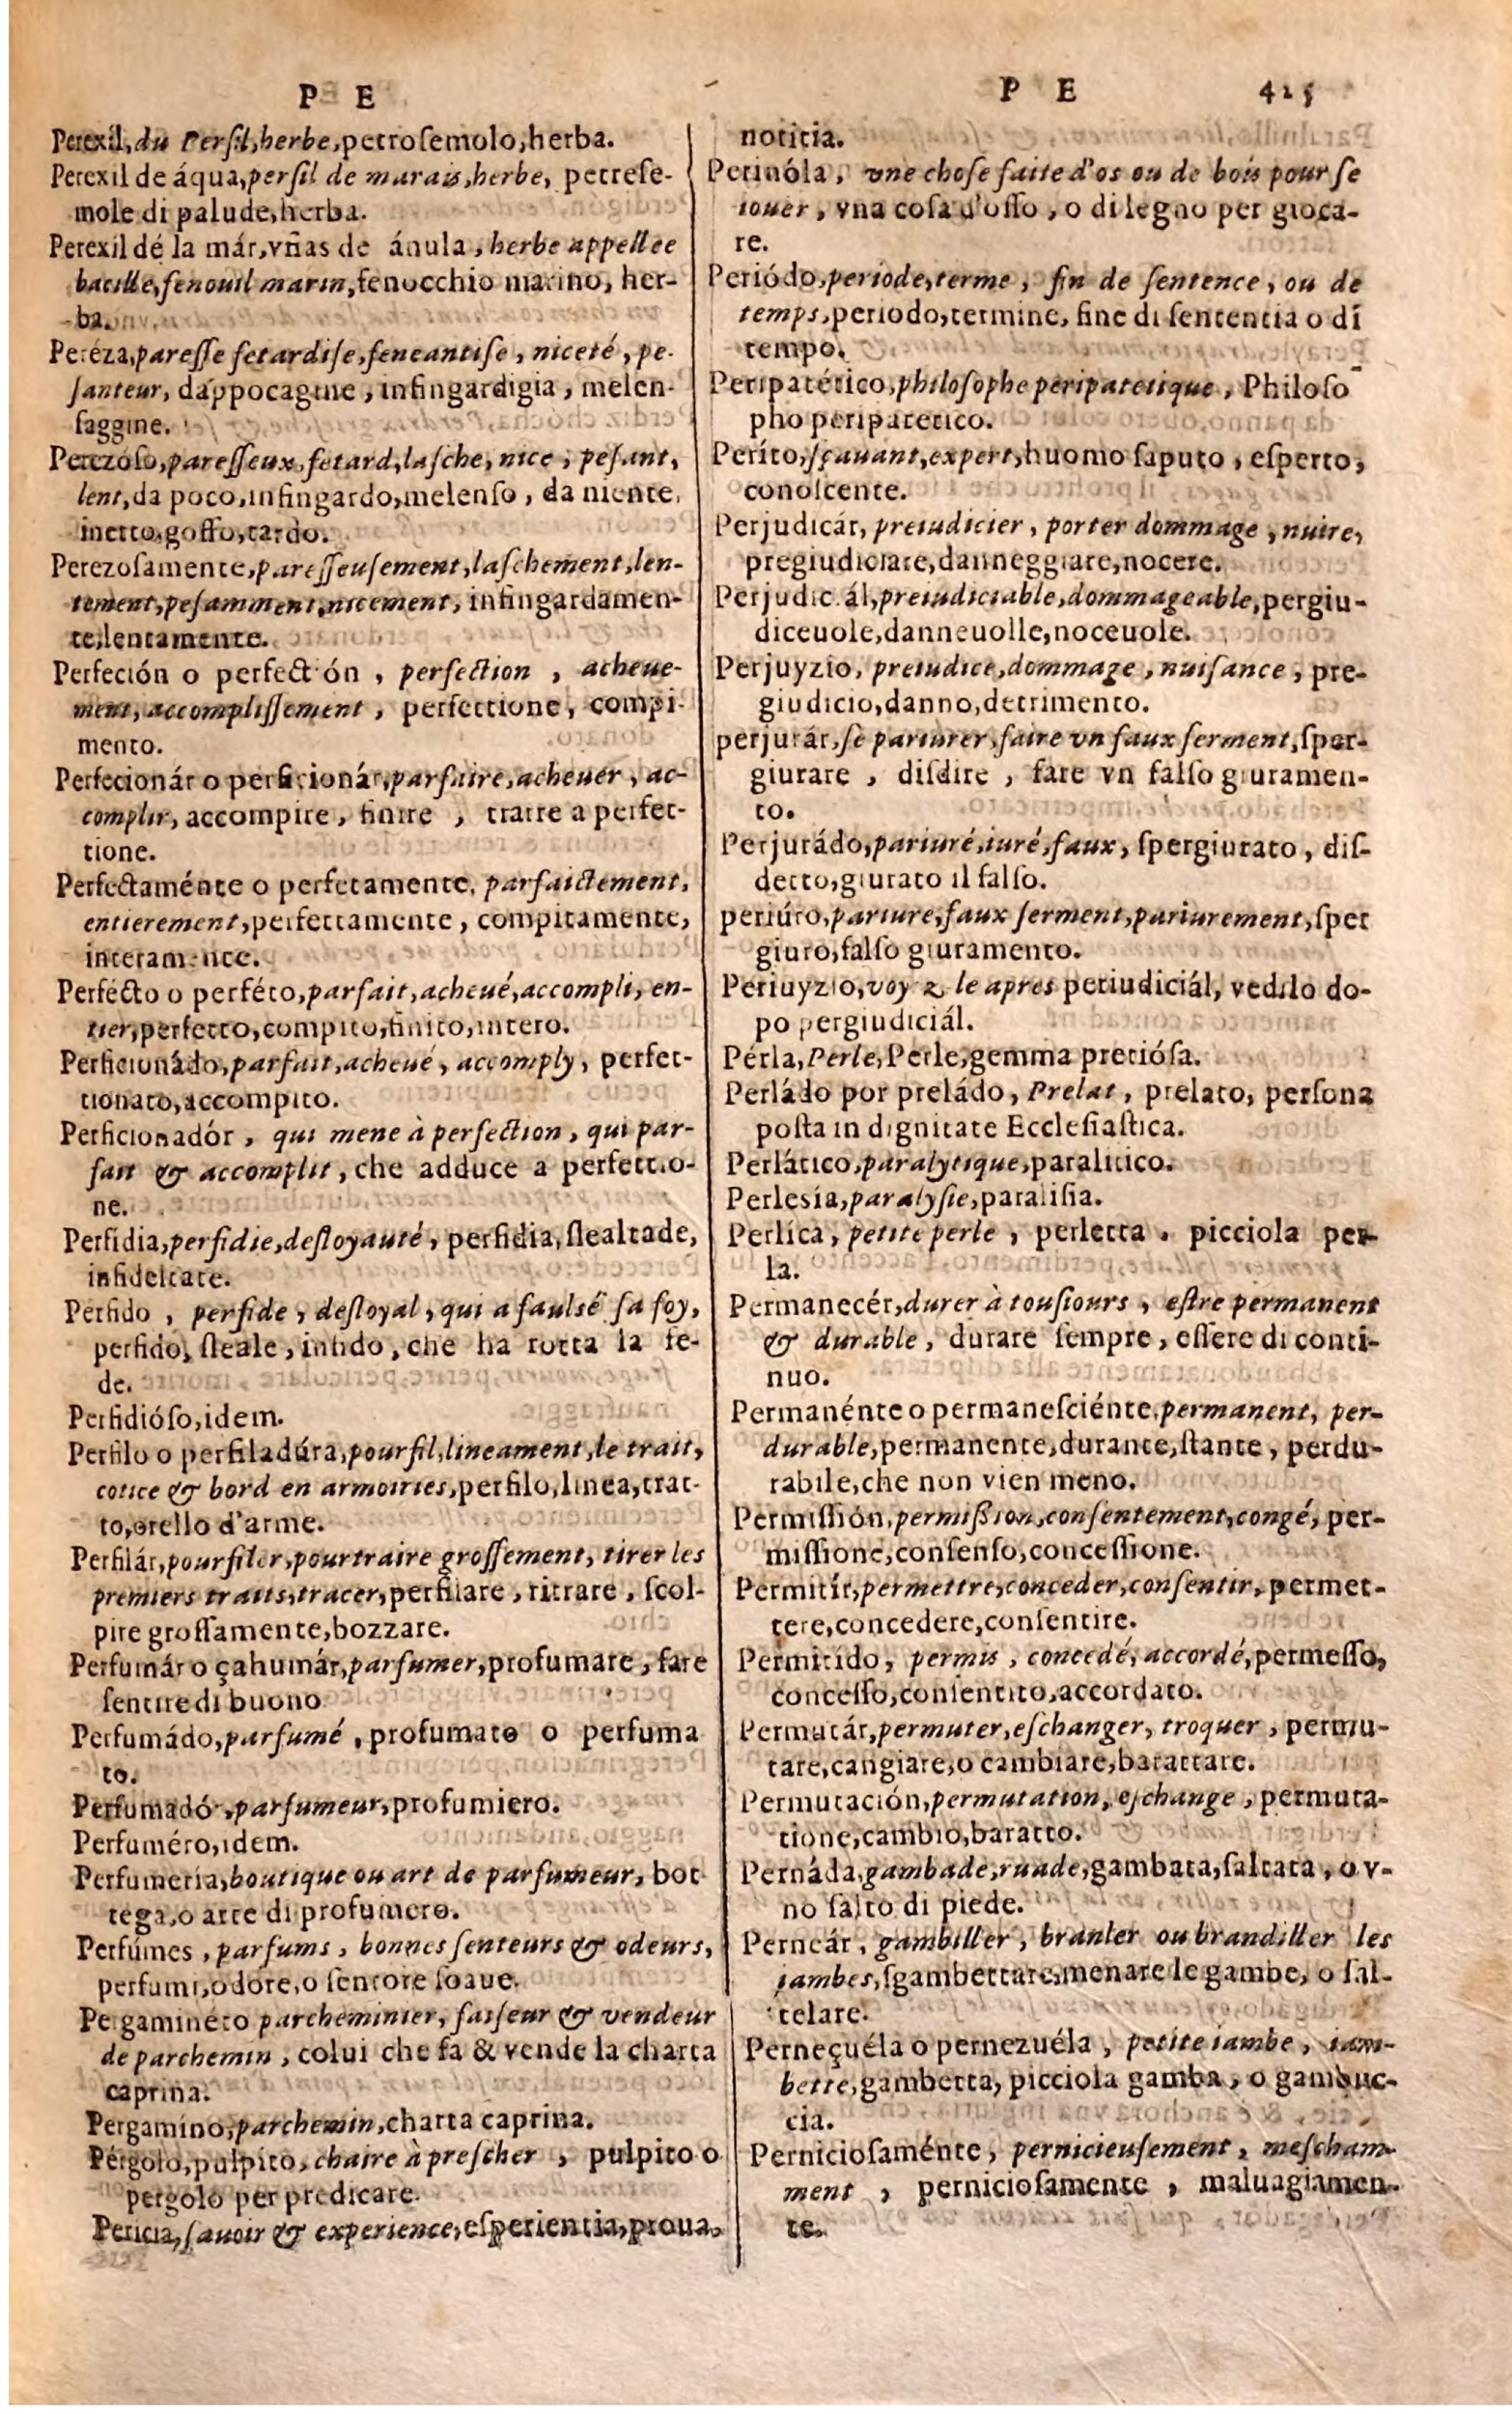 P E
Perexíl, du Persil, herbe, petrosemolo, herba.
Perexil de áqua, persil de marais, herbe, petrese-
mole di palude, herba.
Perexil dé la már, vñas de ánula, herbe appellee
bacille, fenouil marin, fenocchio marino, her-
ba.
Peréza, paresse fetardise, feneantise, niceté, pe-
santeur, dáppocagine, infingardigia, melen-
saggine.
Perezóso, paresseux, fetard, lasche, nice, pesant,
lent, da poco, infingardo, melenso, da niente,
inetto, goffo, tardo.
Perezosamente, paresseusement, laschement, len-
tement, pesamment, nicement, infingardamen-
te, lentamente.
Perfeción o perfectión, perfection, acheue-
ment, accomplissement, perfettione, compi-
mento.
Perfecionár o perficionár, parfaire, acheuer, ac-
complir, accompire, finire, trarre a perfet-
tione.
Perfectaménte o perfetamente, parfaictement,
entierement, perfettamente, compitamente,
interamente.
Perfécto o perféto, parfait, acheué, accompli, en-
tier, perfetto, compito, finito, intero.
Perficionádo, parfait, acheué, accomply, perfet-
tionato, accompito.
Perficionadór, qui mene à perfection, qui par-
fait & accomplit, che adduce a perfettio-
ne.
Perfídia, perfidie, desloyauté, perfidia, slealtade,
infideltate.
Perfido, perfide, desloyal, qui a faulsé sa foy,
perfido, sleale, infido, che ha rotta la fe-
de.
Perfidióso, idem.
Perfilo o perfiladúra, pourfil, lineament, le trait,
cotice & bord en armoiries, perfilo, linea, trat-
to, orello d'arme.
Perfilár, pourfiler, pourtraire grossement, tirer les
premiers traits, tracer, perfilare, ritrare, scol-
pire grossamente, bozzare.
Perfumár o çahumár, parfumer, profumare, fare
sentire di buono
Perfumádo, parfumé, profumato o perfuma
to.
Perfumadór, parfumeur, profumiero.
Perfuméro, idem.
Perfumería, boutique ou art de parfumeur, bot
tega, o arte di profumero.
Perfúmes, parfums, bonnes senteurs & odeurs,
perfumi, odore, o sentore soaue.
Pergaminéro parcheminier, faiseur & vendeur
de parchemin, colui che fa & vende la charta
caprina.
Pergamíno, parchemin, charta caprina.
Pérgolo, pulpito, chaire à prescher, pulpito o
pergolo per predicare.
Pericia, sauoir & experience, esperientia, proua,
P E 415
noticia.
Perinóla, vne chose faite d'os ou de bois pour se
iouer, vna cosa d'osso, o di legno per gioca-
re.
Periódo, periode, terme, fin de sentence, ou de
temps, periodo, termine, fine di sentencia o di
tempo.
Peripatético, philosophe peripatetique, Philoso
pho peripatetico.
Períto, sçauant, expert, huomo saputo, esperto,
conoscente.
Perjudicár, preiudicier, porter dommage, nuire,
pregiudiciare, danneggiare, nocere.
Perjudic.ál, preiudiciable, dommageable, pergiu-
diceuole, danneuolle, noceuole.
Perjuyzio, preiudice, dommage, nuisance, pre-
giudicio, danno, detrimento.
perjurár, se pariurer, faire vn faux serment, sper-
giurare, disdire, fare vn falso giuramen-
to.
Perjurádo, pariuré, iuré, faux, spergiurato, dis-
detto, giurato il falso.
periúro, pariure, faux serment, pariurement, sper
giuro, falso giuramento.
Periuyzio, voy z le apres periudiciál, vedilo do-
po pergiudiciál.
Pérla, Perle, Perle, gemma pretiósa.
Perládo por preládo, Prelat, prelato, persona
posta in dignitate Ecclesiastica.
Perlático, paralytique, paralitico.
Perlesía, paralysie, paralisia.
Perlíca, petite perle, perletta. picciola per-
la.
Permanecér, durer à tousiours, estre permanent
& durable, durare sempre, essere di conti-
nuo.
Permanénte o permanesciénte, permanent, per-
durable, permanente, durante, stante, perdu-
rabile, che non vien meno.
Permissión, permission, consentement, congé, per-
missione, consenso, concessione.
Permitír, permettre, conceder, consentir, permet-
tere, concedere, consentire.
Permitído, permis, concedé, accordé, permesso,
concesso, consentito, accordato.
Permutár, permuter, eschanger, troquer, permu-
tare, cangiare, o cambiare, barattare.
Permutación, permutation, eschange, permuta-
tione, cambio, baratto.
Pernáda, gambade, ruade, gambata, saltata, o v-
no salto di piede.
Perneár, gambiller, branler ou brandiller les
iambes, sgambettare, menare le gambe, o sal-
telare.
Perneçuéla o pernezuéla, petite iambe, iam-
bette, gambetta, picciola gamba, o gambuc-
cia.
Perniciosaménte, pernicieusement, mescham-
ment, perniciosamente, maluagiamen-
te.